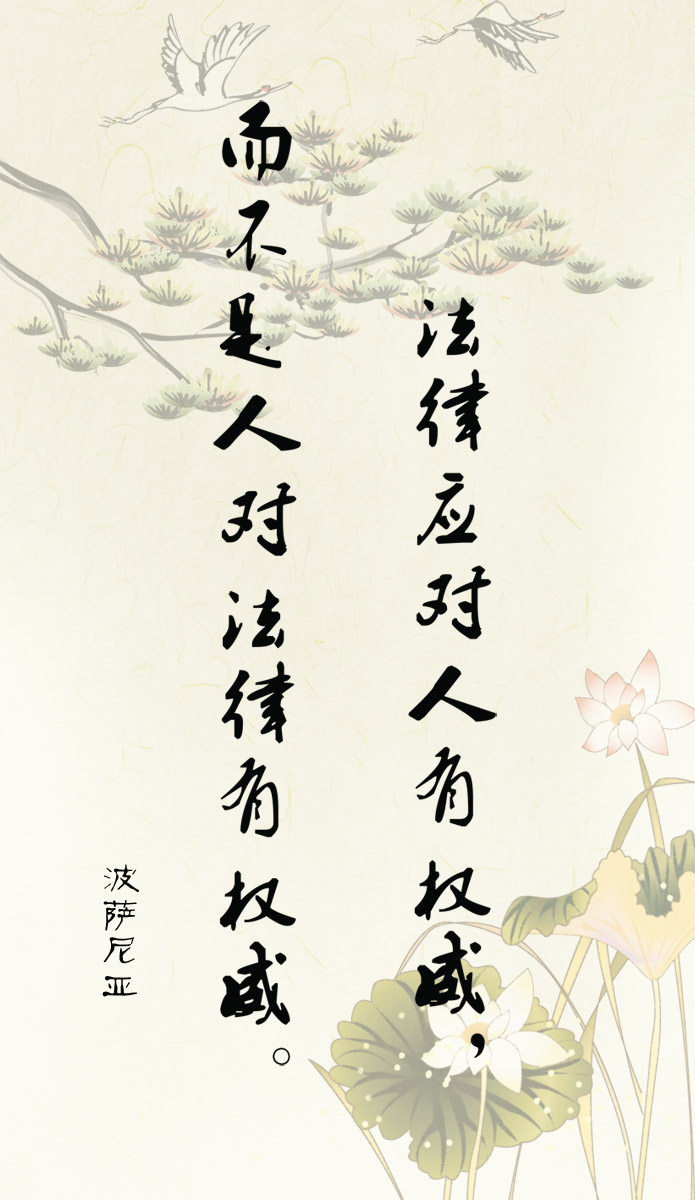 法律应对人有权威，
而不是人对法律有权威。
波萨尼亚